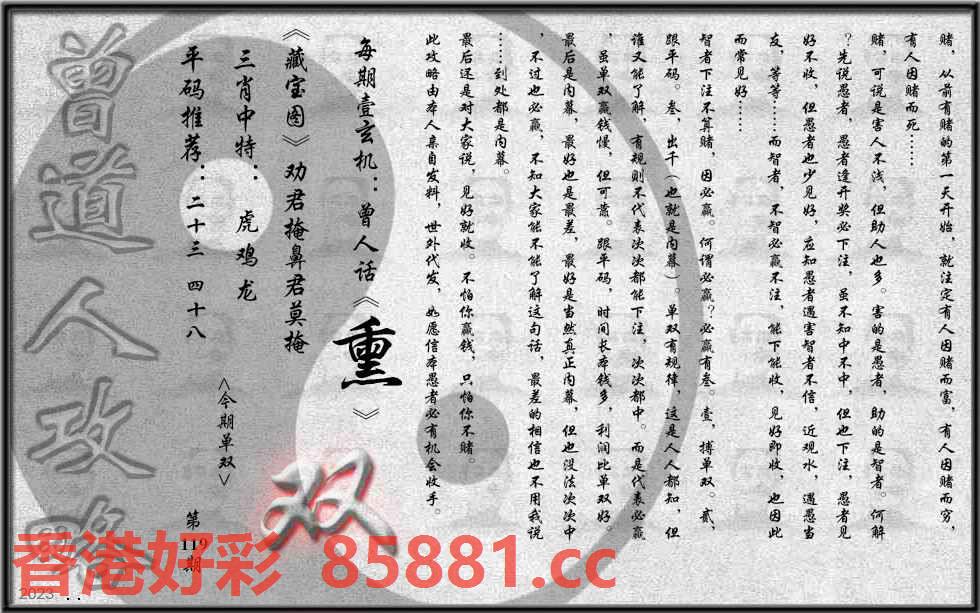 赌，从前有赌的第一天开始，就注定有人因赌而富，有人因赌而穷，
有人因赌而死……
赌，可说是害人不浅，但助人也多。害的是愚者，助的是智者。何解
？先说愚者，愚者逢开奖必下注，虽不知中不中，但也下注，愚者见
好不收，但愚者也少见好，应知愚者遇害智者不信，近观水，遇愚当
友，等等……而智者，不智必赢不注，能下能收，见好即收，也因此
而常见好……
智者下注不算赌，因必赢。何谓必赢？必赢有叁。壹，搏单双。贰，
跟平码。叁，出千（也就是内幕）。单双有规律，这是人人都知，但
谁又能了解，有规则不代表次次都能下注，次次都中。而是代表必赢
，虽单双赢钱慢，但可靠。跟平码，时间长本钱多，利润比单双好。
最后是内幕，最好也是最差，最好是当然真正内幕，但也没法次次中
，不过也必赢，不知大家能不能了解这句话，最差的相信也不用我说
……到处都是内幕。
最后还是对大家说，见好就收。不怕你赢钱，只怕你不赌。
此攻略由本人亲自发料，世外代发，如愿信本愚者必有机会收手。
每期壹玄机：曾人话《熏》
《藏宝图》劝君掩鼻君莫掩
三肖中特：虎鸡龙
平码推荐：二十三 四十八
<今期单双>
双
第119期
曾道人攻略
香港好彩 85881.cc
2023